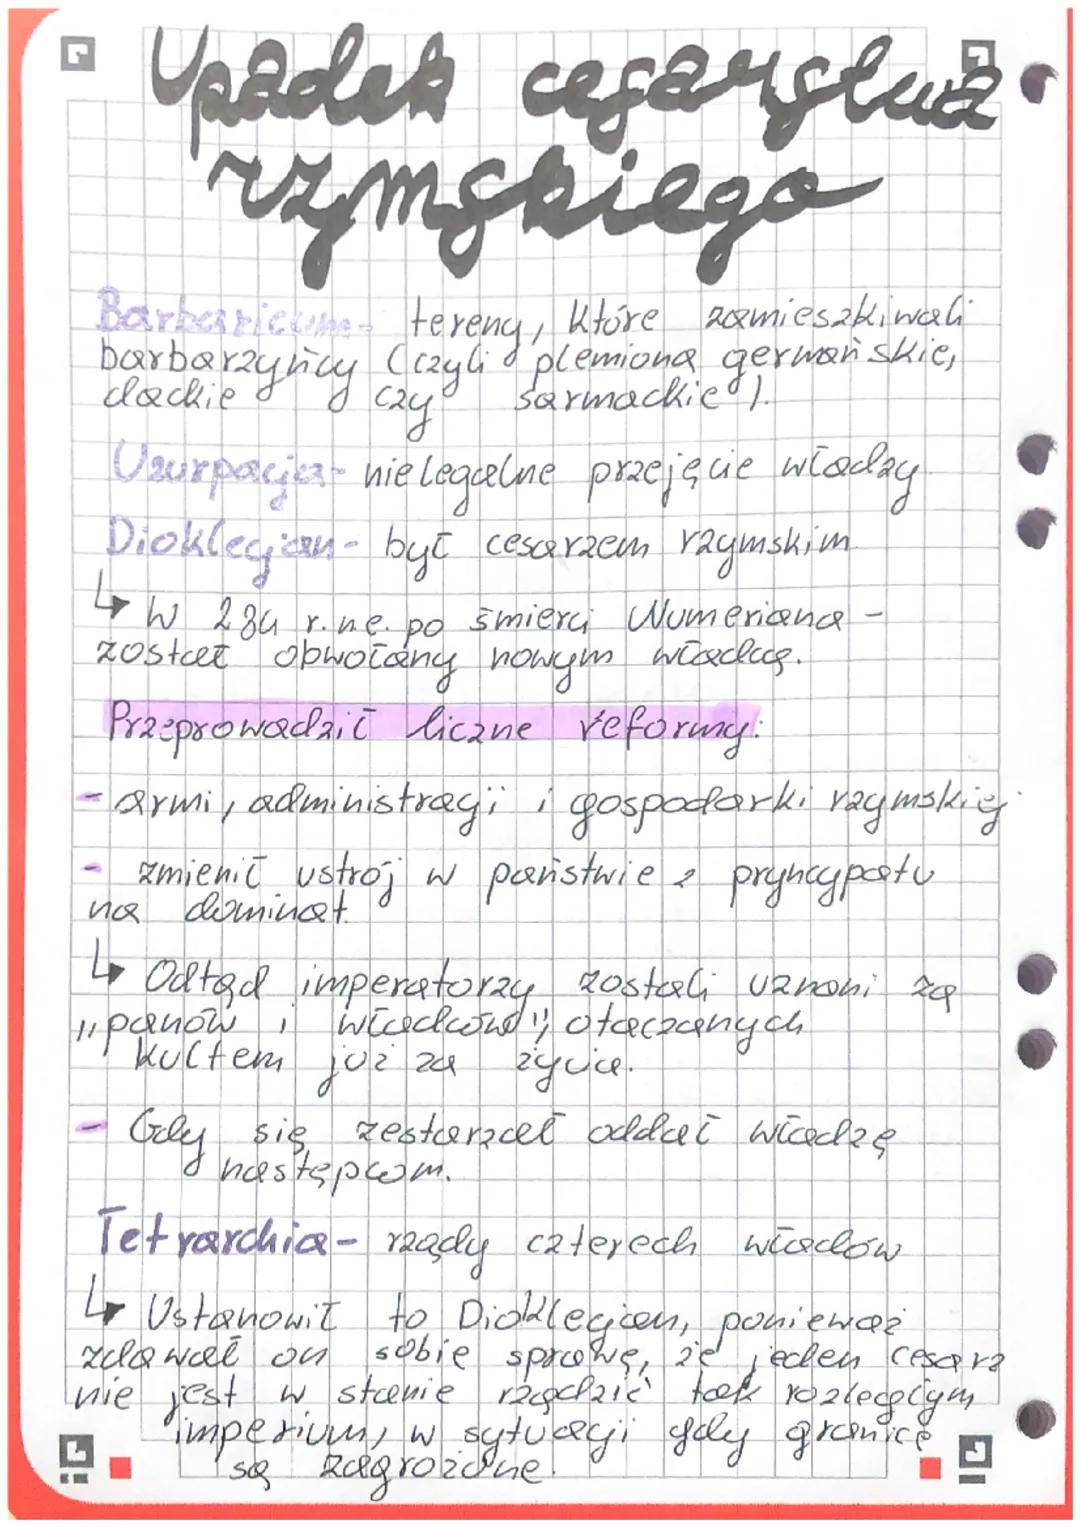 Upadek cesarstwa
rzymskiego
Barbaricum- tereny, które zamieszkiwali
barbarzyńcy (czyli plemiona germańskie,
dackie czy sarmackie).
Uzurpacja- nielegalne przejęcie władzy
Dioklecjan- był cesarzem rzymskim
↳ W 284 r. n.e. po śmierci Numeriana -
został obwołany nowym władcą.
Przeprowadził liczne reformy:
- armi, administracji i gospodarki rzymskiej
- zmienił ustrój w państwie z pryncypatu
na dominat.
↳ Odtąd imperatorzy zostali uznani za
„panów i władców", otaczanych
kultem już za życia.
- Gdy się zestarzał oddał władzę
następcom.
Tetrarchia- rządy czterech władców
↳ Ustanowił to Dioklecjan, ponieważ
zdawał on sobie sprawę, że jeden cesarz
nie jest w stanie rządzić tak rozległym
imperium, w sytuacji gdy granice
są zagrożone.